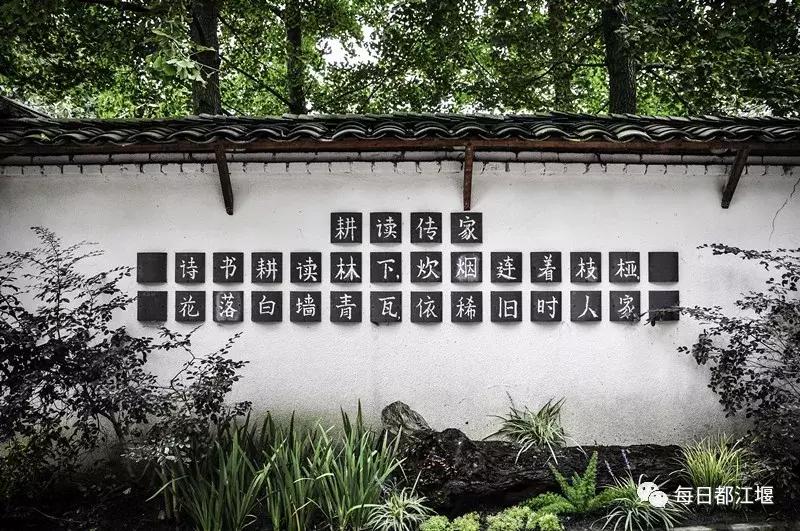 耕读传家
诗书耕读林下炊烟连着枝桠
花落白墙青瓦依稀旧时人家
每日都江堰